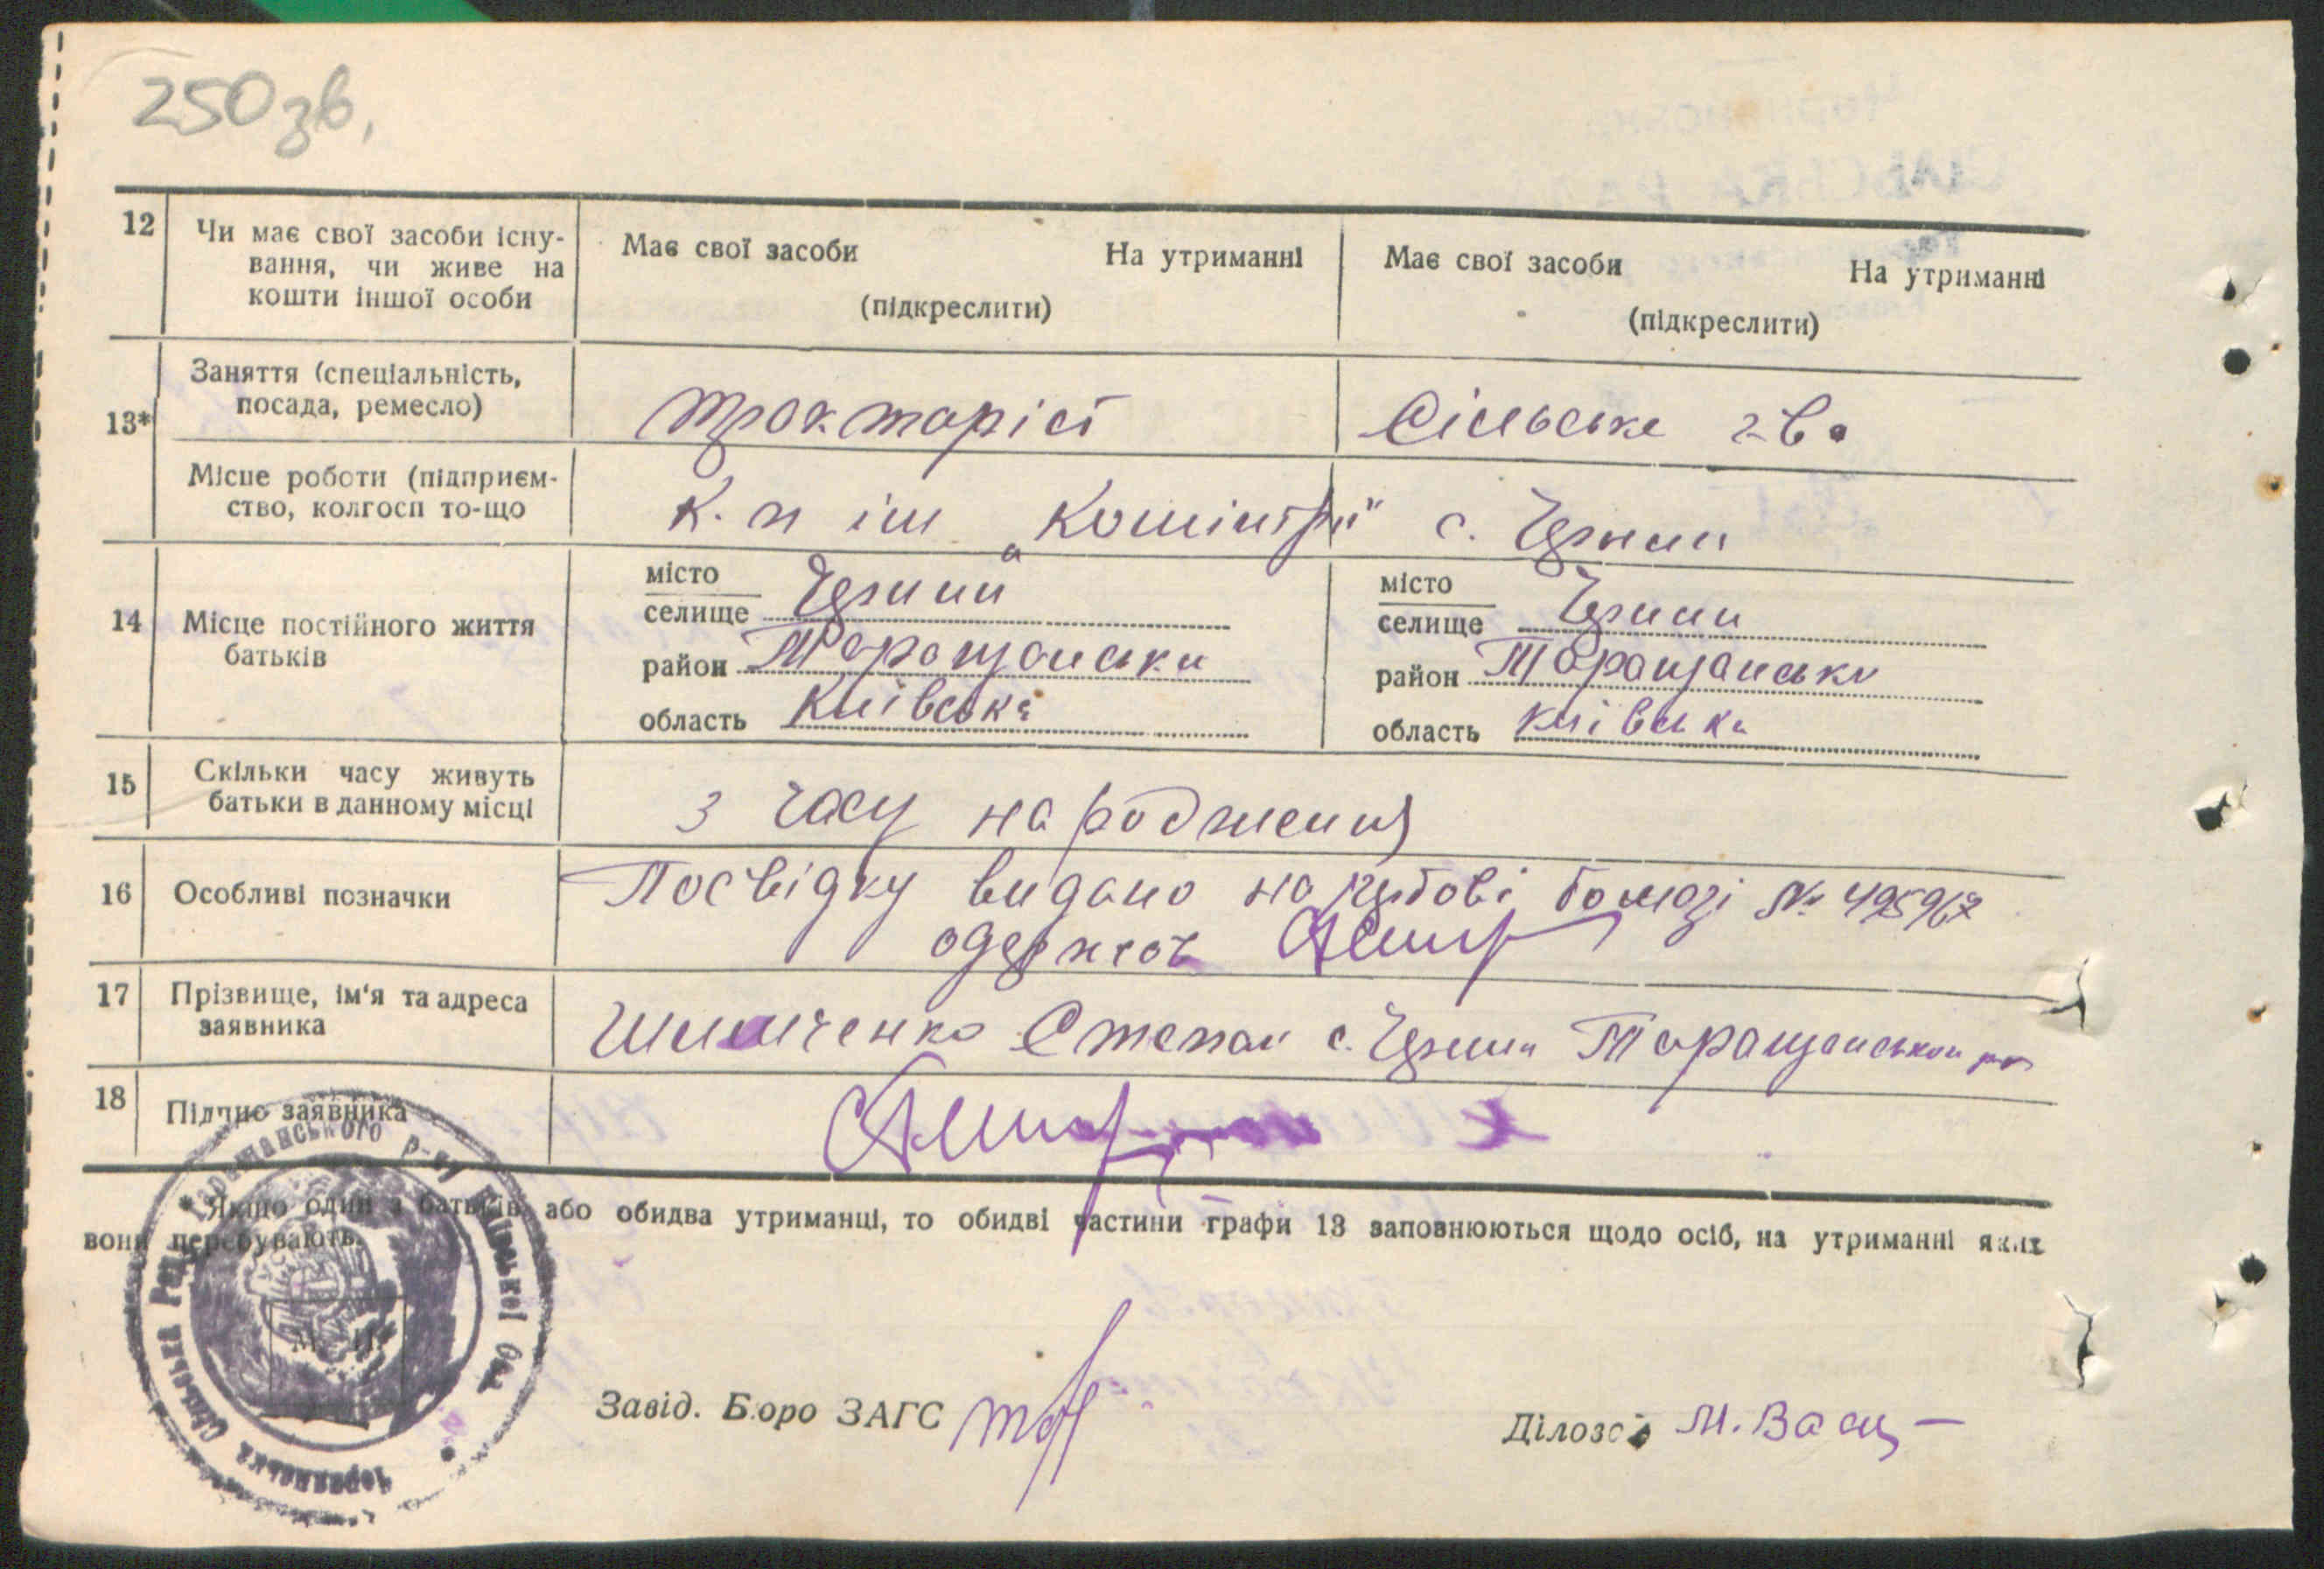 250 зв.
12 Чи має свої засоби існу-
вання, чи живе на
кошти іншої особи
Має свої засоби На утриманні
(підкреслити)
Має свої засоби На утриманні
(підкреслити)
13* Заняття (спеціальність,
посада, ремесло)
тракторіст
Сільське г-во
Місце роботи (підприєм-
ство, колгосп то-що
к-п ім „Комінтерн" с. Чернин
14 Місце постійного життя
батьків
місто
селище Чернин
район Таращанськи
область Київська
місто
селище Чернин
район Таращанськи
область Київська
15 Скільки часу живуть
батьки в данному місці
з часу народження
16 Особливі позначки
Посвідку видано на гербові бомазі № 495967
одержов
17 Прізвище, ім'я та адреса
заявника
Степан с. Чернин Таращанського р-н
18 Підпис заявника
* Якщо один з батьків або обидва утриманці, то обидві частини графи 13 заповнюються щодо осіб, на утриманні яких
вони перебувають.
Таращанського р-ну Київської Обл.
Сільська Рада
М. П.
Завід. Бюро ЗАГС
Діловод М.